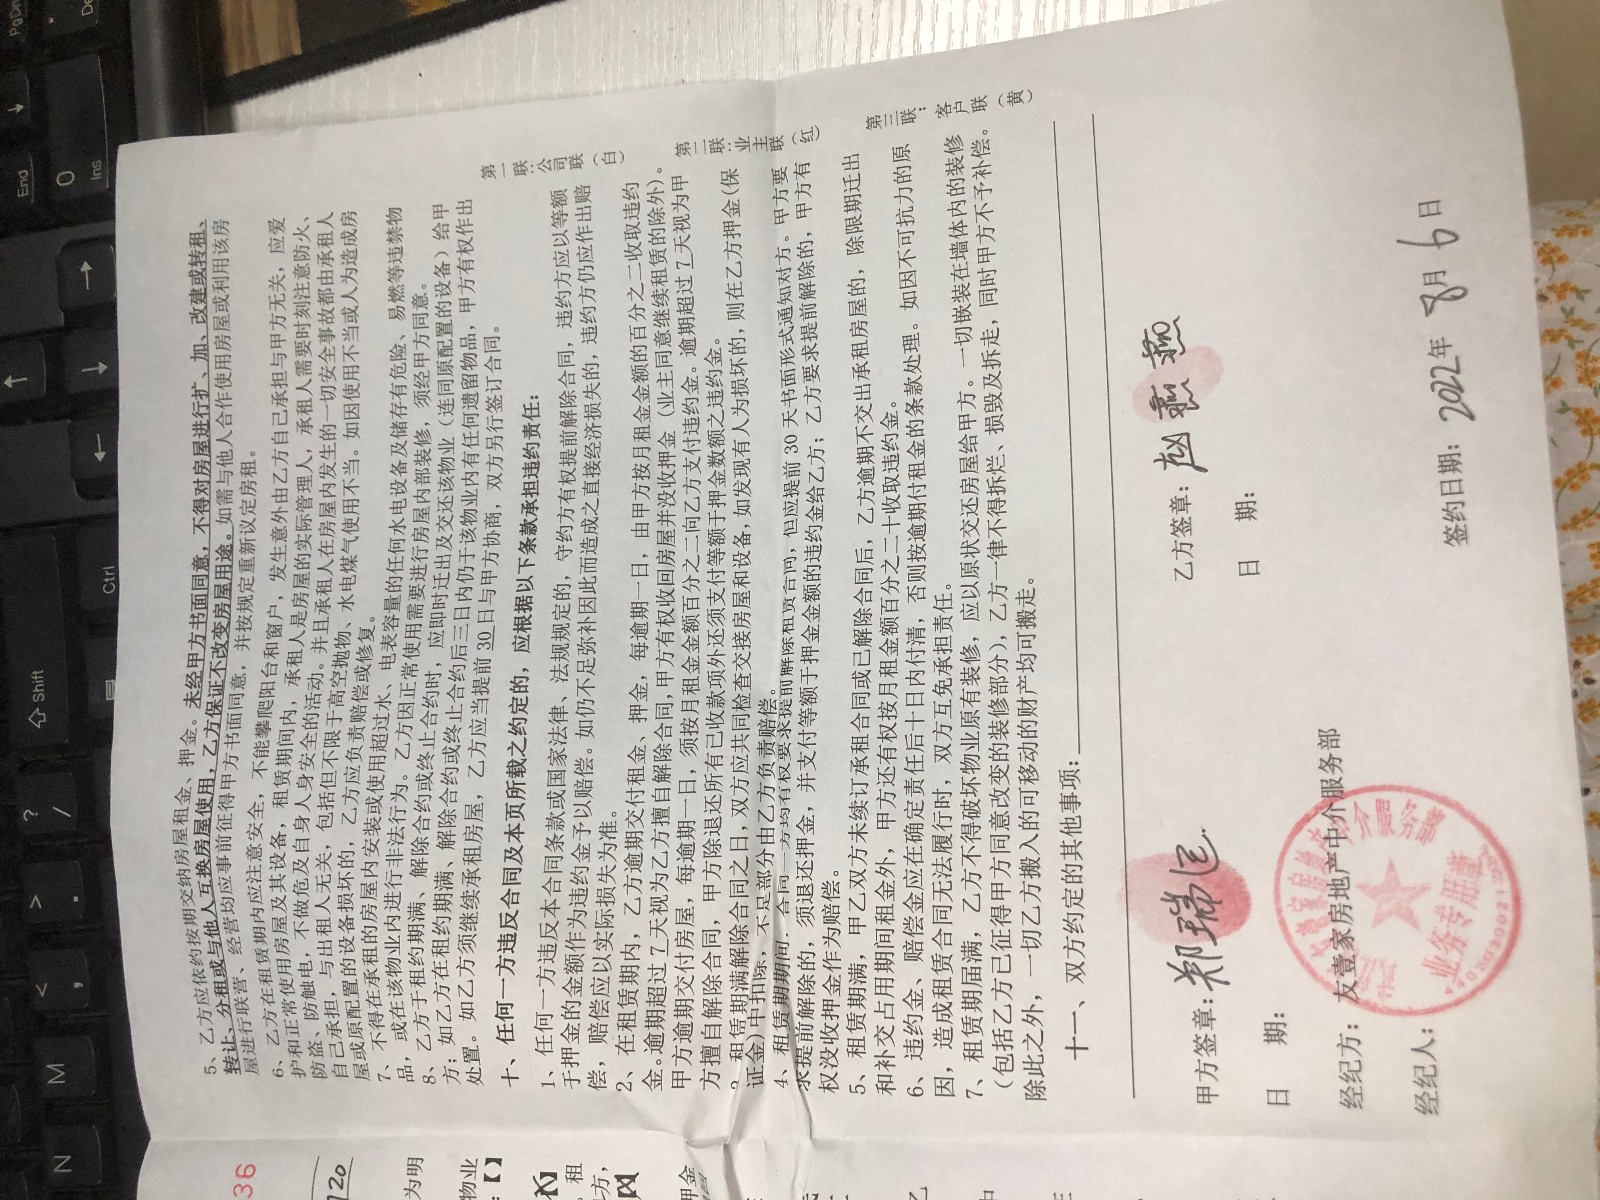 5、乙方应依约按期交纳房屋租金、押金。未经甲方书面同意，不得对房屋进行扩、加、改建或转租、
转让、分租或与他人互换房屋使用，乙方保证不改变房屋用途。如需与他人合作使用房屋或利用该房
屋进行联营、经营均应事前征得甲方书面同意，并按规定重新议定房租。
6、乙方在租赁期内应注意安全，不能攀爬阳台和窗户，发生意外由乙方自己承担与甲方无关，应爱
护和正常使用房屋及其设备，租赁期间内，承租人是房屋的实际管理人，承租人需要时刻注意防火、
防盗、防触电，不做危及自身人身安全的活动。并且承租人在房屋内发生的一切安全事故都由承租人
自己承担，与出租人无关，包括但不限于高空抛物、水电煤气使用不当。如因使用不当或人为造成房
屋或原配置的设备损坏的，乙方应负责赔偿或修复。
7、不得在承租的房屋内安装或使用超过水、电表容量的任何水电设备及储存有危险、易燃等违禁物
品，或在该物业内进行非法行为。乙方因正常使用需要进行房屋内部装修，须经甲方同意。
8、乙方于租约期满、解除合约或终止合约时，应即时迁出及交还该物业（连同原配置的设备）给甲
方；如乙方在租约期满、解除合约或终止合约后三日内仍于该物业内有任何遗留物品，甲方有权作出
处置。如乙方须继续承租房屋，乙方应当提前30日与甲方协商，双方另行签订合同。
十、任何一方违反合同及本页所载之约定的，应根据以下条款承担违约责任：
1、任何一方违反本合同条款或国家法律、法规规定的，守约方有权提前解除合同，违约方应以等额
于押金的金额作为违约金予以赔偿。如仍不足弥补因此而造成之直接经济损失的，违约方仍应作出赔
偿，赔偿应以实际损失为准。
2、在租赁期内，乙方逾期交付租金、押金，每逾期一日，由甲方按月租金金额的百分之二收取违约
金。逾期超过7天视为乙方擅自解除合同，甲方有权收回房屋并没收押金（业主同意继续租赁的除外）。
甲方逾期交付房屋，每逾期一日，须按月租金金额百分之二向乙方支付违约金。逾期超过7天视为甲
方擅自解除合同，甲方除退还所有已收款项外还须支付等额于押金数额之违约金。
3、租赁期满解除合同之日，双方应共同检查交接房屋和设备，如发现有人为损坏的，则在乙方押金（保
证金）中扣除，不足部分由乙方负责赔偿。
4、租赁期期间，合同一方均有权要求提前解除租赁合同，但应提前30天书面形式通知对方。甲方要
求提前解除的，须退还押金，并支付等额于押金金额的违约金给乙方；乙方要求提前解除的，甲方有
权没收押金作为赔偿。
5、租赁期满，甲乙双方未续订承租合同或已解除合同后，乙方逾期不交出承租房屋的，除限期迁出
和补交占用期间租金外，甲方还有权按月租金额百分之二十收取违约金。
6、违约金、赔偿金应在确定责任后十日内付清，否则按逾期付租金的条款处理。如因不可抗力的原
因，造成租赁合同无法履行时，双方互免承担责任。
7、租赁期届满，乙方不得破坏物业原有装修，应以原状交还房屋给甲方。一切嵌装在墙体内的装修
（包括乙方已征得甲方同意改变的装修部分），乙方一律不得拆烂、损毁及拆走，同时甲方不予补偿。
除此之外，一切乙方搬入的可移动的财产均可搬走。
十一、双方约定的其他事项：
第一联：公司联（白）
第二联：业主联（红）
第三联：客户联（黄）
甲方签章：郑瑞
乙方签章：赵燕燕
日 期：
日 期：
经纪方：友壹家房地产中介服务部
业务专用章
经纪人：
签约日期：2022年8月6日
36
120
为明
物业
：【】
租
方，
押金
PgDn
End
Ins
0
Ctrl
Shift
?
/
>
.
<
,
M
N